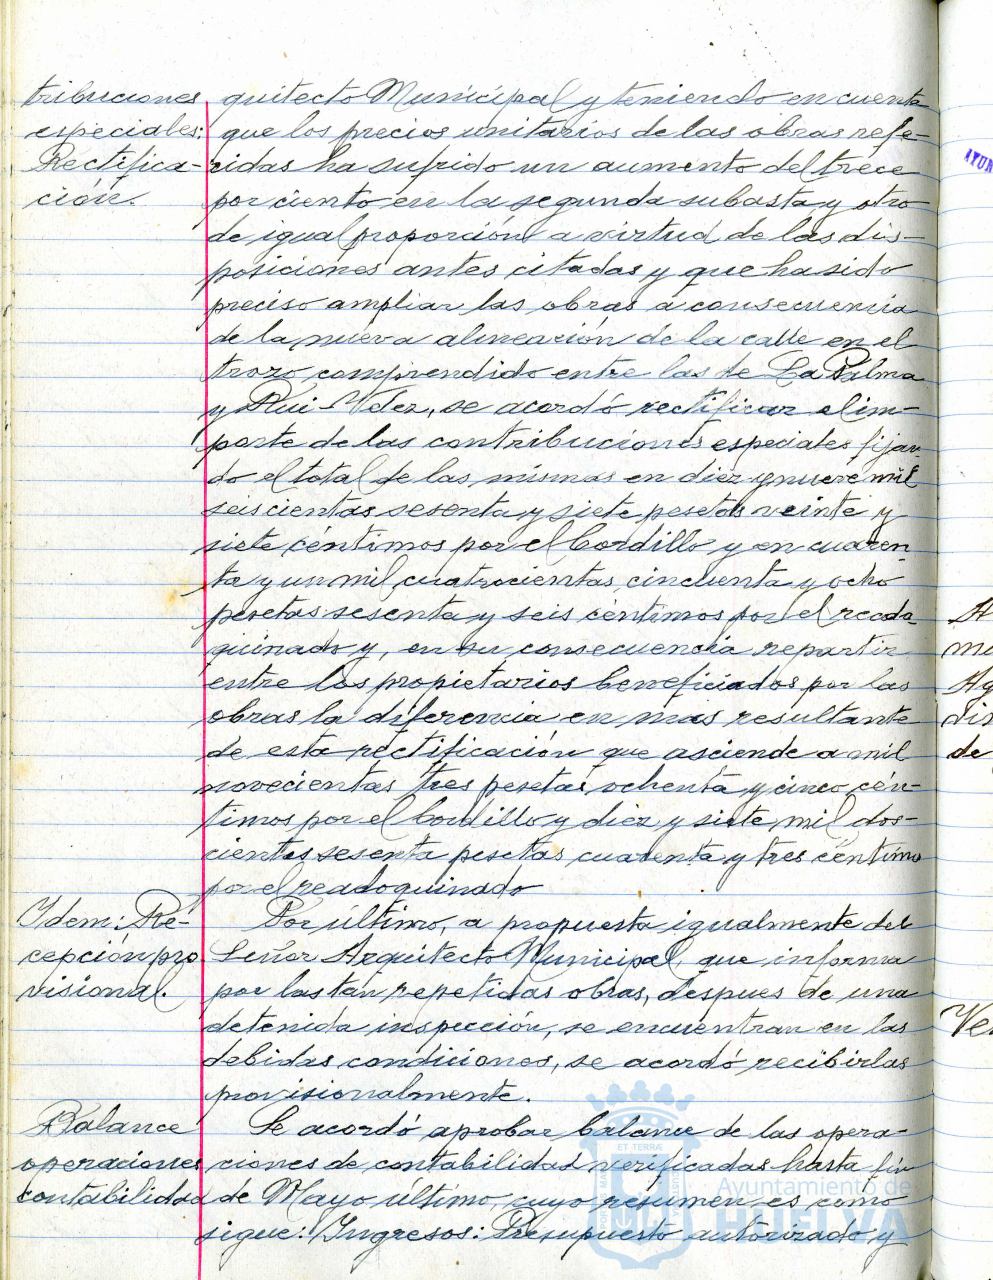 tribuciones
especiales:
Rectifica-
ción.
quitecto Municipal y teniendo en cuenta
que los precios unitarios de las obras refe-
ridas ha sufrido un aumento del trece
por ciento en la segunda subasta y otro
de igual proporción a virtud de las dis-
posiciones antes citadas y que ha sido
preciso ampliar las obras a consecuencia
de la nueva alineación de la calle en el
trozo comprendido entre las de La Palma
y Rui-Velez, se acordó rectificar el im-
porte de las contribuciones especiales fijan-
do el total de las mismas en diez y nueve mil
seiscientas sesenta y siete pesetas veinte y
siete céntimos por el bordillo y en cuaren
ta y un mil cuatrocientas cincuenta y ocho
pesetas sesenta y seis céntimos por el reado
quinado y, en su consecuencia repartir
entre los propietarios beneficiados por las
obras la diferencia en mas resultante
de esta rectificación que asciende a mil
novecientas tres pesetas ochenta y cinco cén-
timos por el bordillo y diez y siete mil dos-
cientas sesenta pesetas cuarenta y tres céntimos
por el readoquinado
Idem: Re-
cepción pro
visional.
Por último, a propuesta igualmente del
Señor Arquitecto Municipal, que informa
por las tan repetidas obras, despues de una
detenida inspección, se encuentran en las
debidas condiciones, se acordó recibirlas
provisionalmente.
Balance
operaciones
contabilidad
Se acordó aprobar balance de las opera-
ciones de contabilidad verificadas hasta fin
de Mayo último, cuyo resumen es como
sigue: Ingresos: Presupuesto autorizado y
Ayuntamiento de
HUELVA